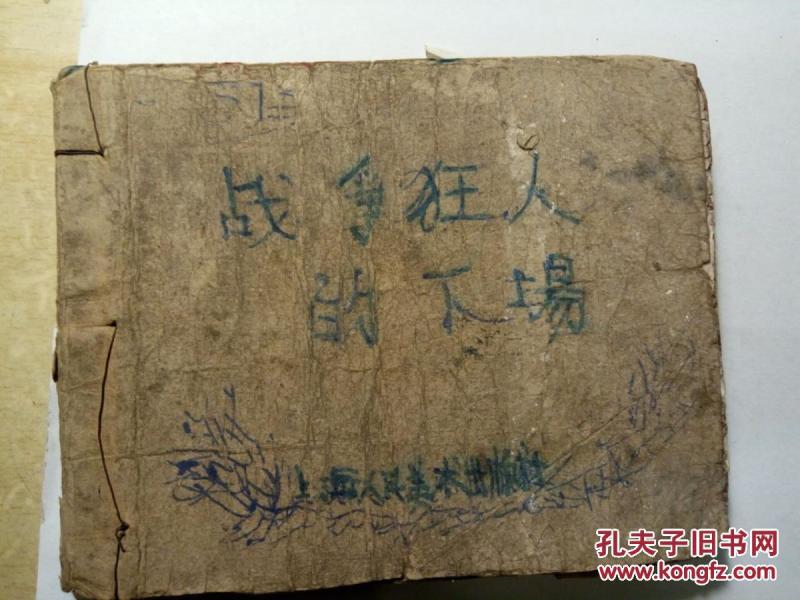 战争狂人
的下場
上海人民美术出版社
孔夫子旧书网
www.kongfz.com